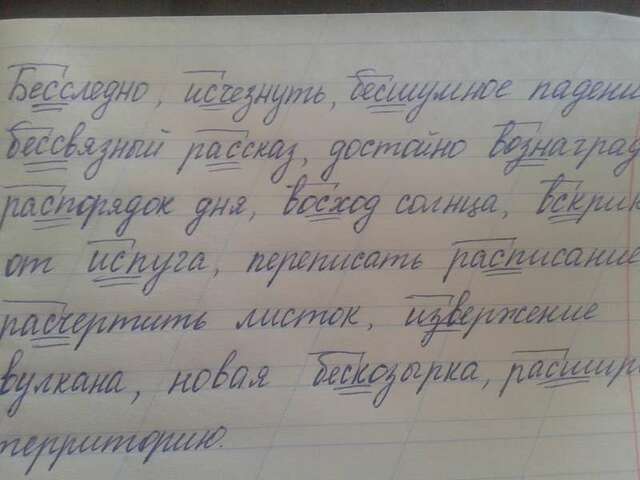 Бесследно, исчезнуть, бесшумное падени
бессвязный рассказ, достойно вознаград
распорядок дня, восход солнца, вскрик
от испуга, переписать расписание
расчертить листок, извержение
вулкана, новая бескозырка, расшир
территорию.